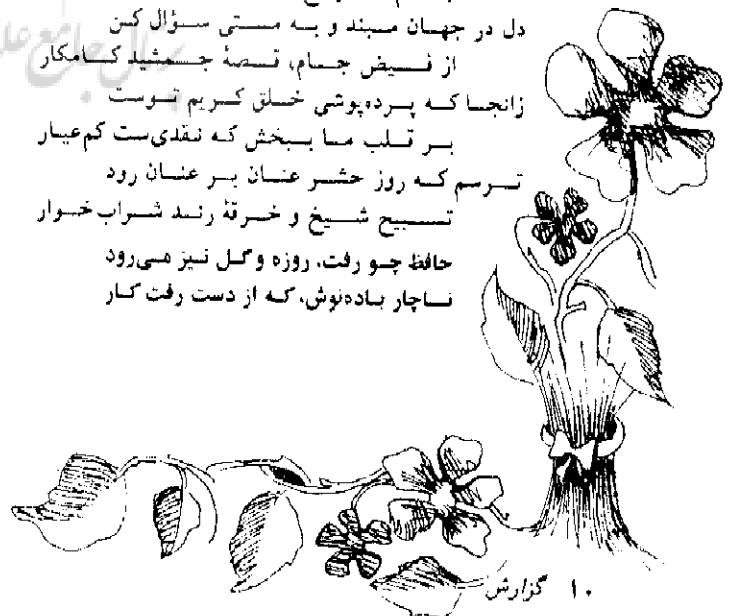 دل در جهان مبند و به مستی سؤال کن
از فیض جام، قصهٔ جمشید کامکار
زانجا که پرده‌پوشی خلق کریم توست
بر قلب ما ببخش که نقدی‌ست کم‌عیار
ترسم که روز حشر عنان بر عنان رود
تسبیح شیخ و خرقهٔ رند شراب خوار
حافظ چو رفت، روزه و گل نیز می‌رود
ناچار باده‌نوش، که از دست رفت کار
۱۰ گزارش